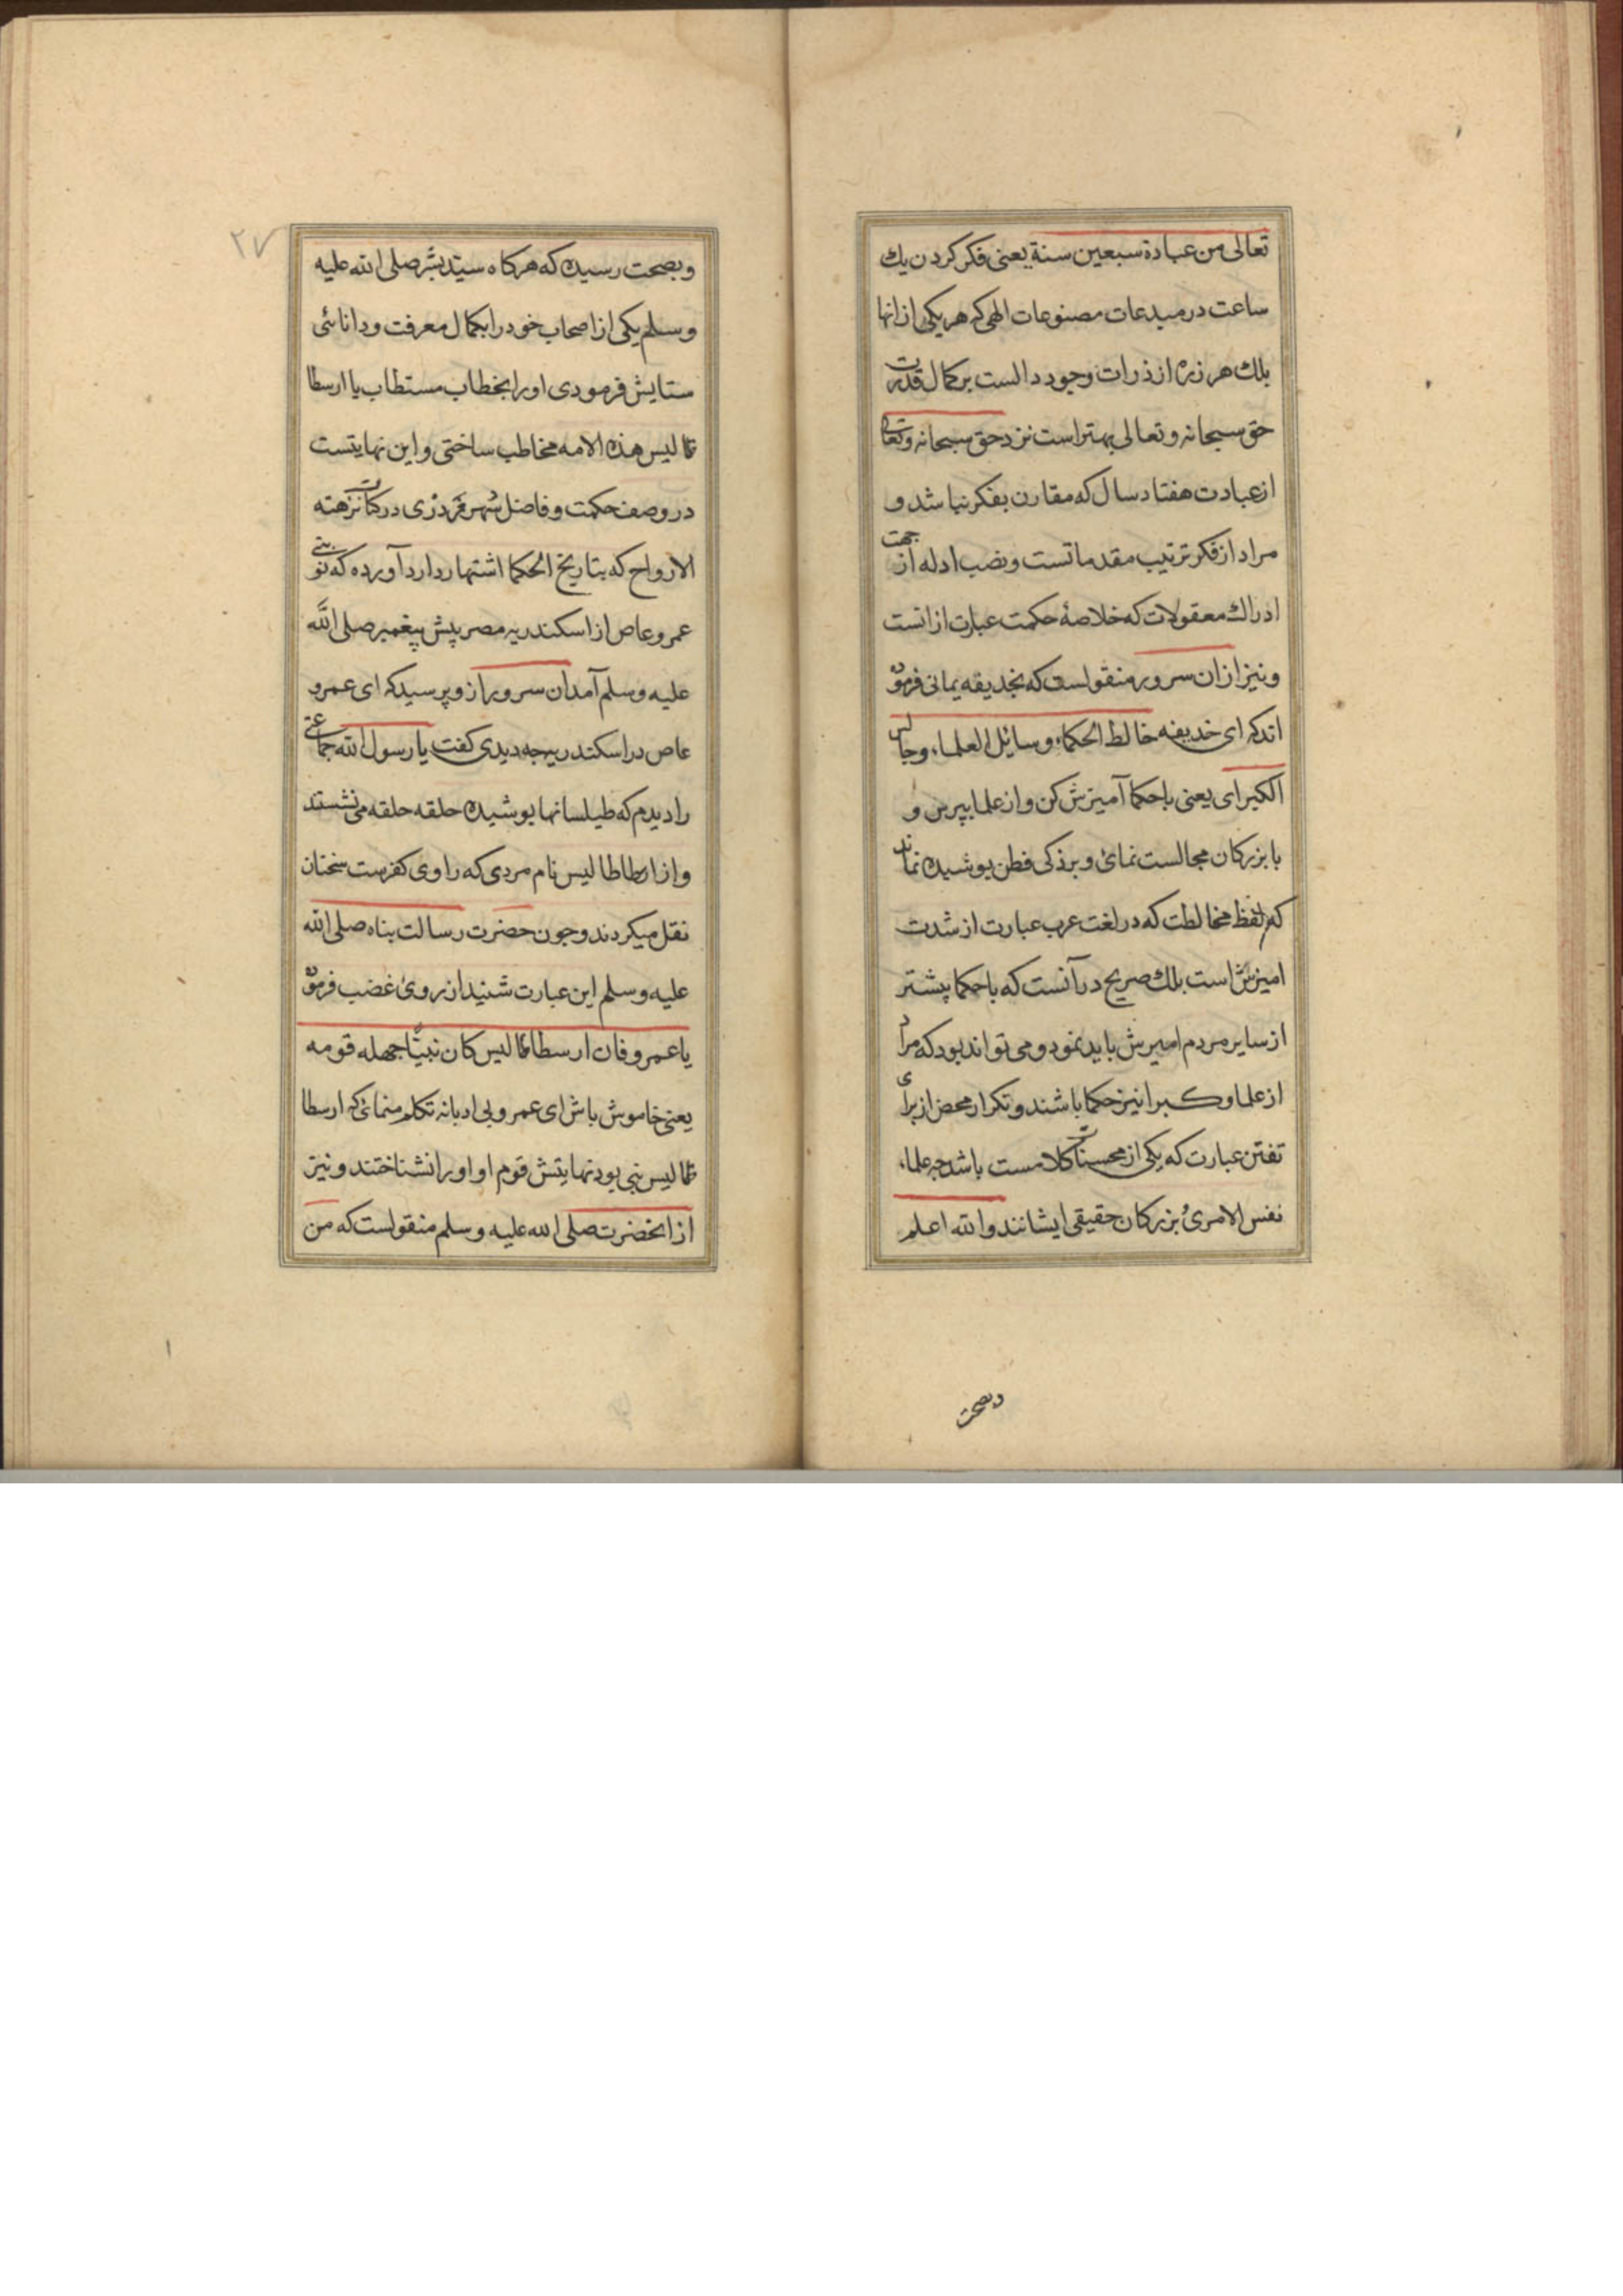 تعالی من عبادة سبعین سنة یعنی فکر کردن یك
ساعت در مبدعات مصنوعات الهی که هر یکی از انها
بلك هر زره از ذرات وجود دالست بر کمال قدرت
حق سبحانه و تعالی بهتر است نزد حق سبحانه و تعالی
از عبادت هفتاد سال که مقارن بفکر نباشد و
مراد از فکر ترتیب مقدماتست و نصب ادله از جهت
ادراك معقولات که خلاصهٔ حکمت عبارت ازانست
و نیز ازان سرور منقولست که بخدیقه یمانی فرموده
اند که ای خدیفه خالط الحکماء و سائل العلماء و جالس
الکبرا ای یعنی باحکما آمیزش کن و از علما بپرس و
با بزرکان مجالست نمائ و بر ذکی فطن پوشیده نماند
که لفظ مخالطت که در لغت عرب عبارت از شدت
امیزش است بلك صریح در آنست که باحکما پیشتر
از سایر مردم امیزش باید نمود و می تواند بود که مراد
از علما و کبرا نیز حکما باشند و تکرار محض از برای
تفتن عبارت که یکی از محسنات کلامست باشد چه علماء
نفس الامریُ بزرکان حقیقی ایشانند و الله اعلم
وبصحت
۲۷
و بصحت رسیده که هر کاه سیّد بشر صلی الله علیه
و سلم یکی از اصحاب خود را بکمال معرفت و دانائی
ستایش فرمودی اورا بخطاب مستطاب یا ارسطا
طالیس هذه الامه مخاطب ساختی و این نهایتست
در وصف حکمت و فاضل شهرزوری در کتاب نزهته
الارواح که بتاریخ الحکما اشتهار دارد آورده که نوبتی
عمرو عاص از اسکندریه مصر پیش پیغمبر صلی الله
علیه و سلم آمد ان سرور ازو پرسید که ای عمرو
عاص در اسکندریه چه دیدی کفت یا رسول الله جماعتی
را دیدم که طیلسانها پوشیده حلقه حلقه می نشستند
و از ارطاطالیس نام مردی که راوی کفرست سخنان
نقل میکردند و چون حضرت رسالت پناه صلی الله
علیه و سلم این عبارت شنید از روی غضب فرموده
یا عمرو فان ارسطاطالیس کان نبیّا جهله قومه
یعنی خاموش باش ای عمرو بی ادبانه تکلم منمائ که ارسطا
طالیس نبی بود نهایتش قوم او اورا نشناختند و نیز
از انحضرت صلی الله علیه و سلم منقولست که من